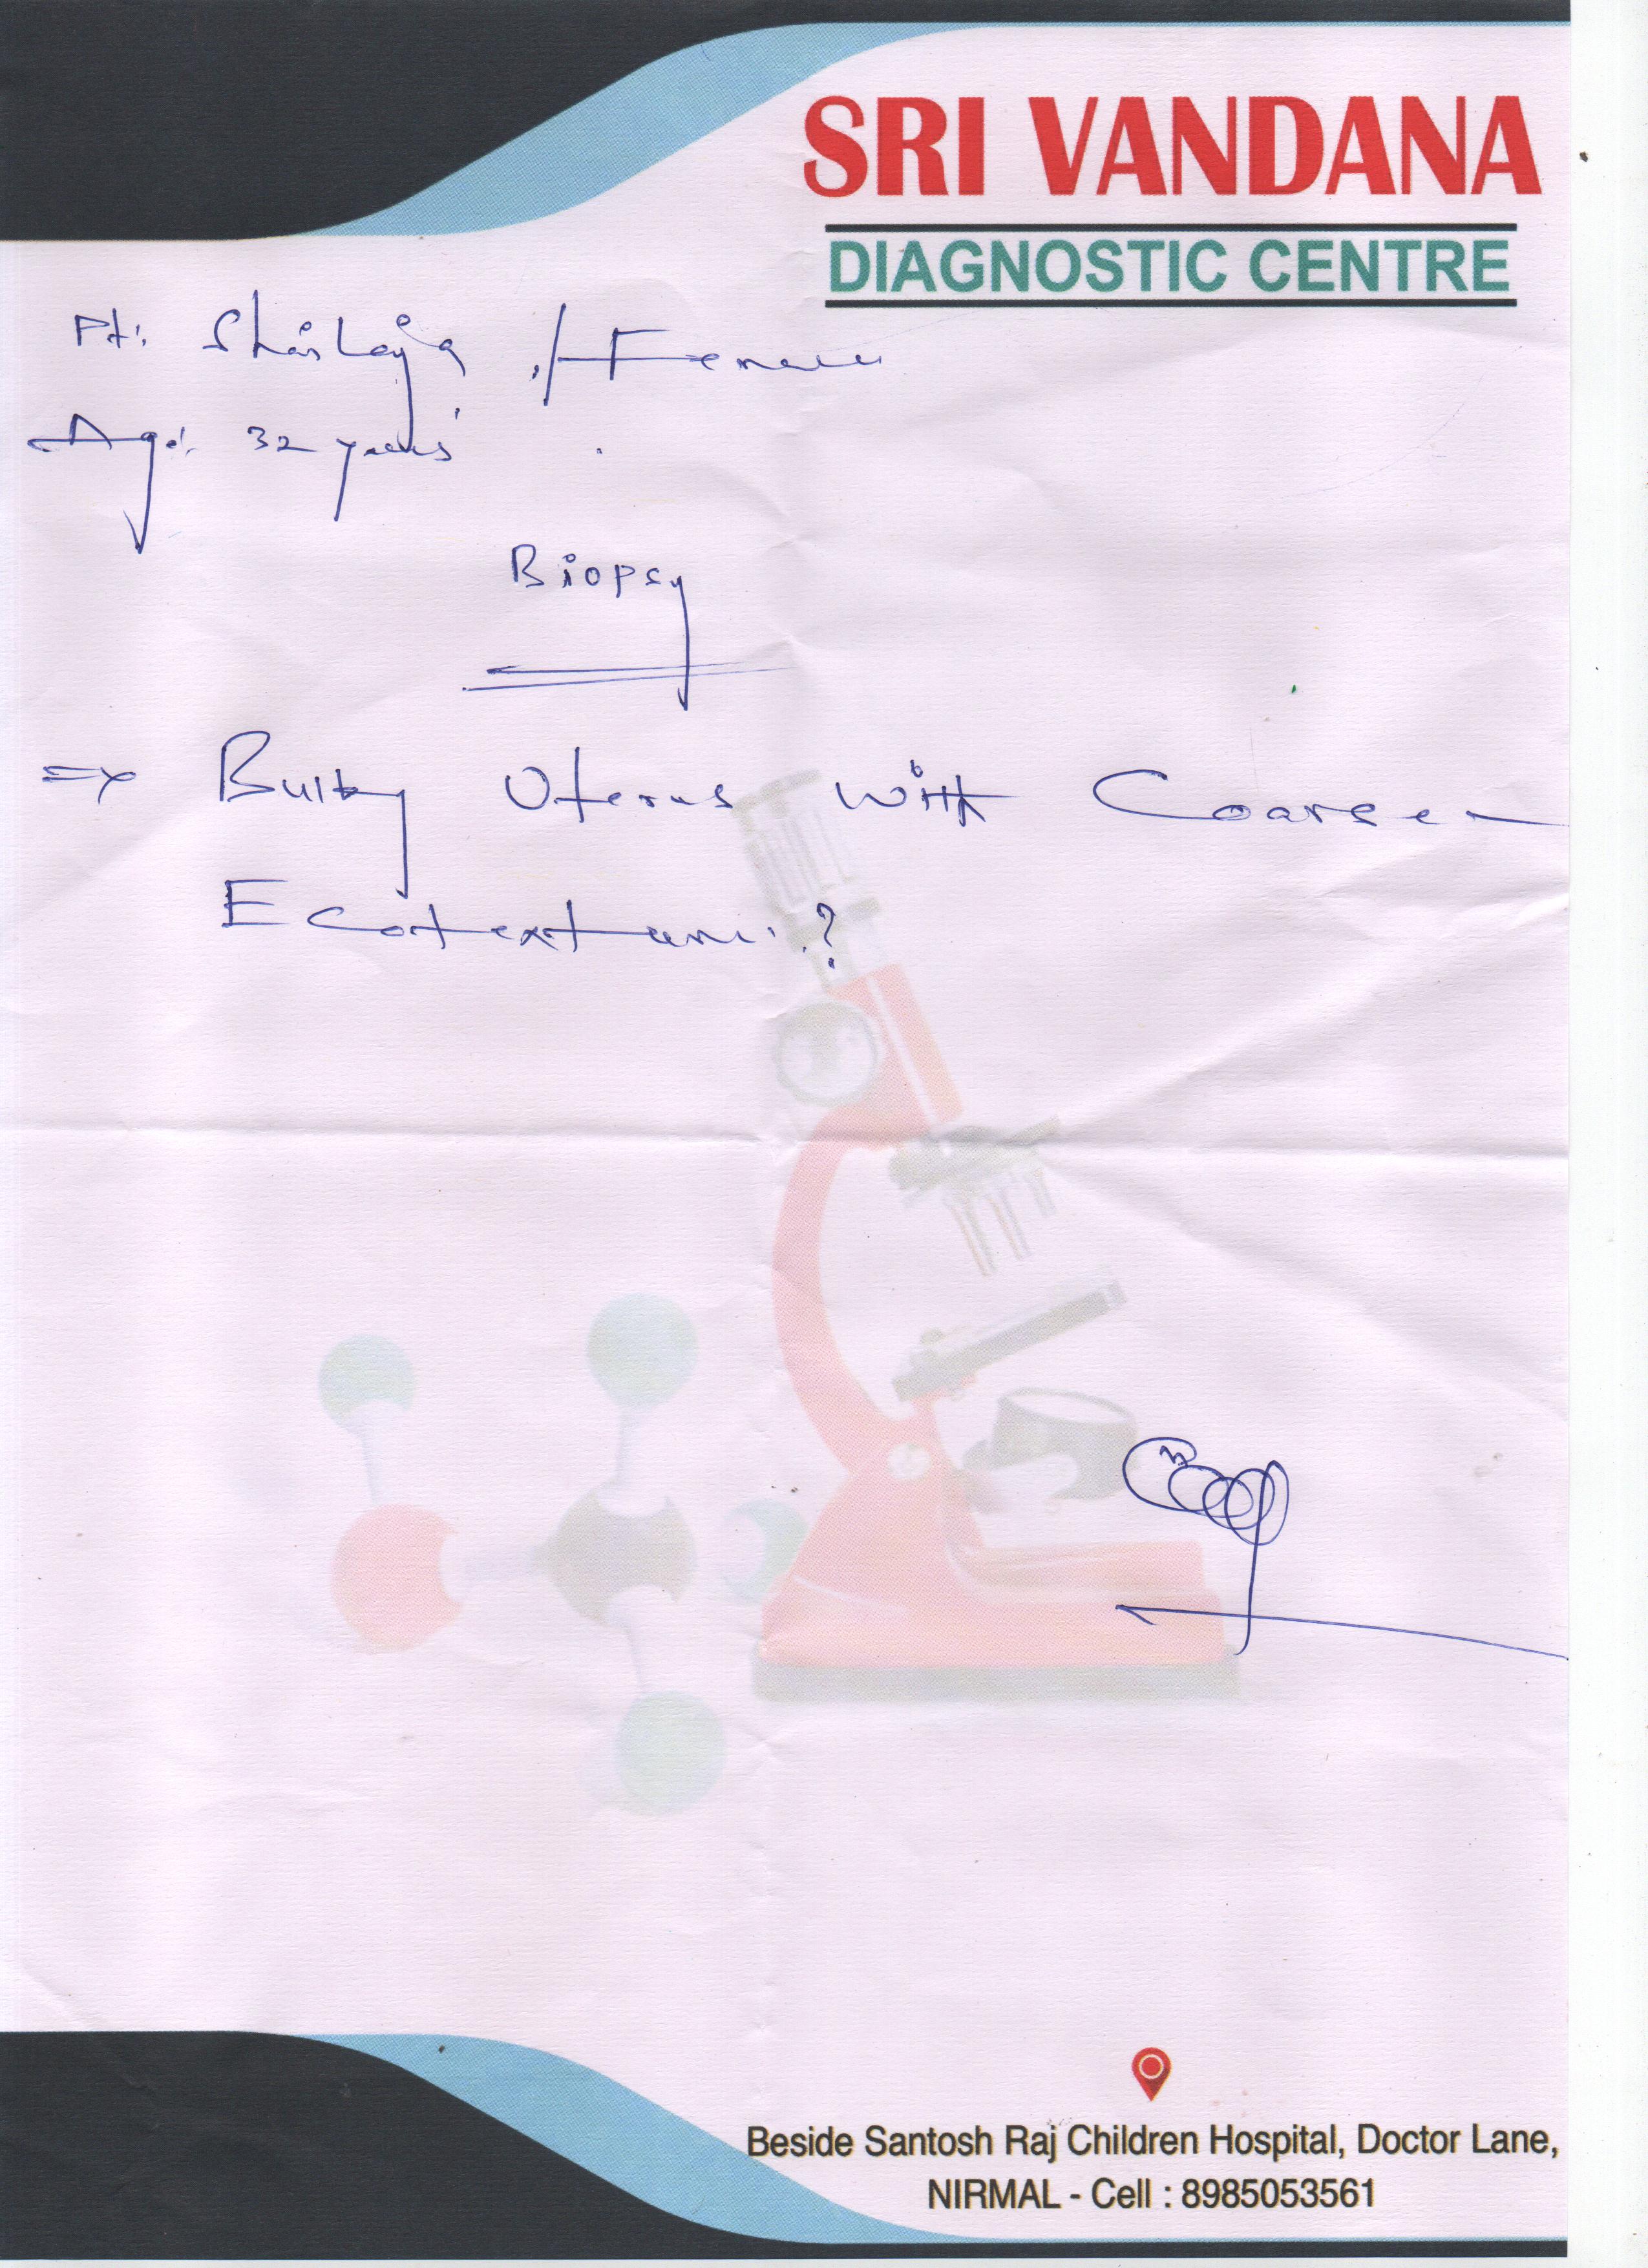 SRI VANDANA
DIAGNOSTIC CENTRE
Pt: Shailaja /Female
Age: 32 years
Biopsy
=> Bulky Uterus with Coarse
Ecotexture ?
Beside Santosh Raj Children Hospital, Doctor Lane,
NIRMAL - Cell : 8985053561